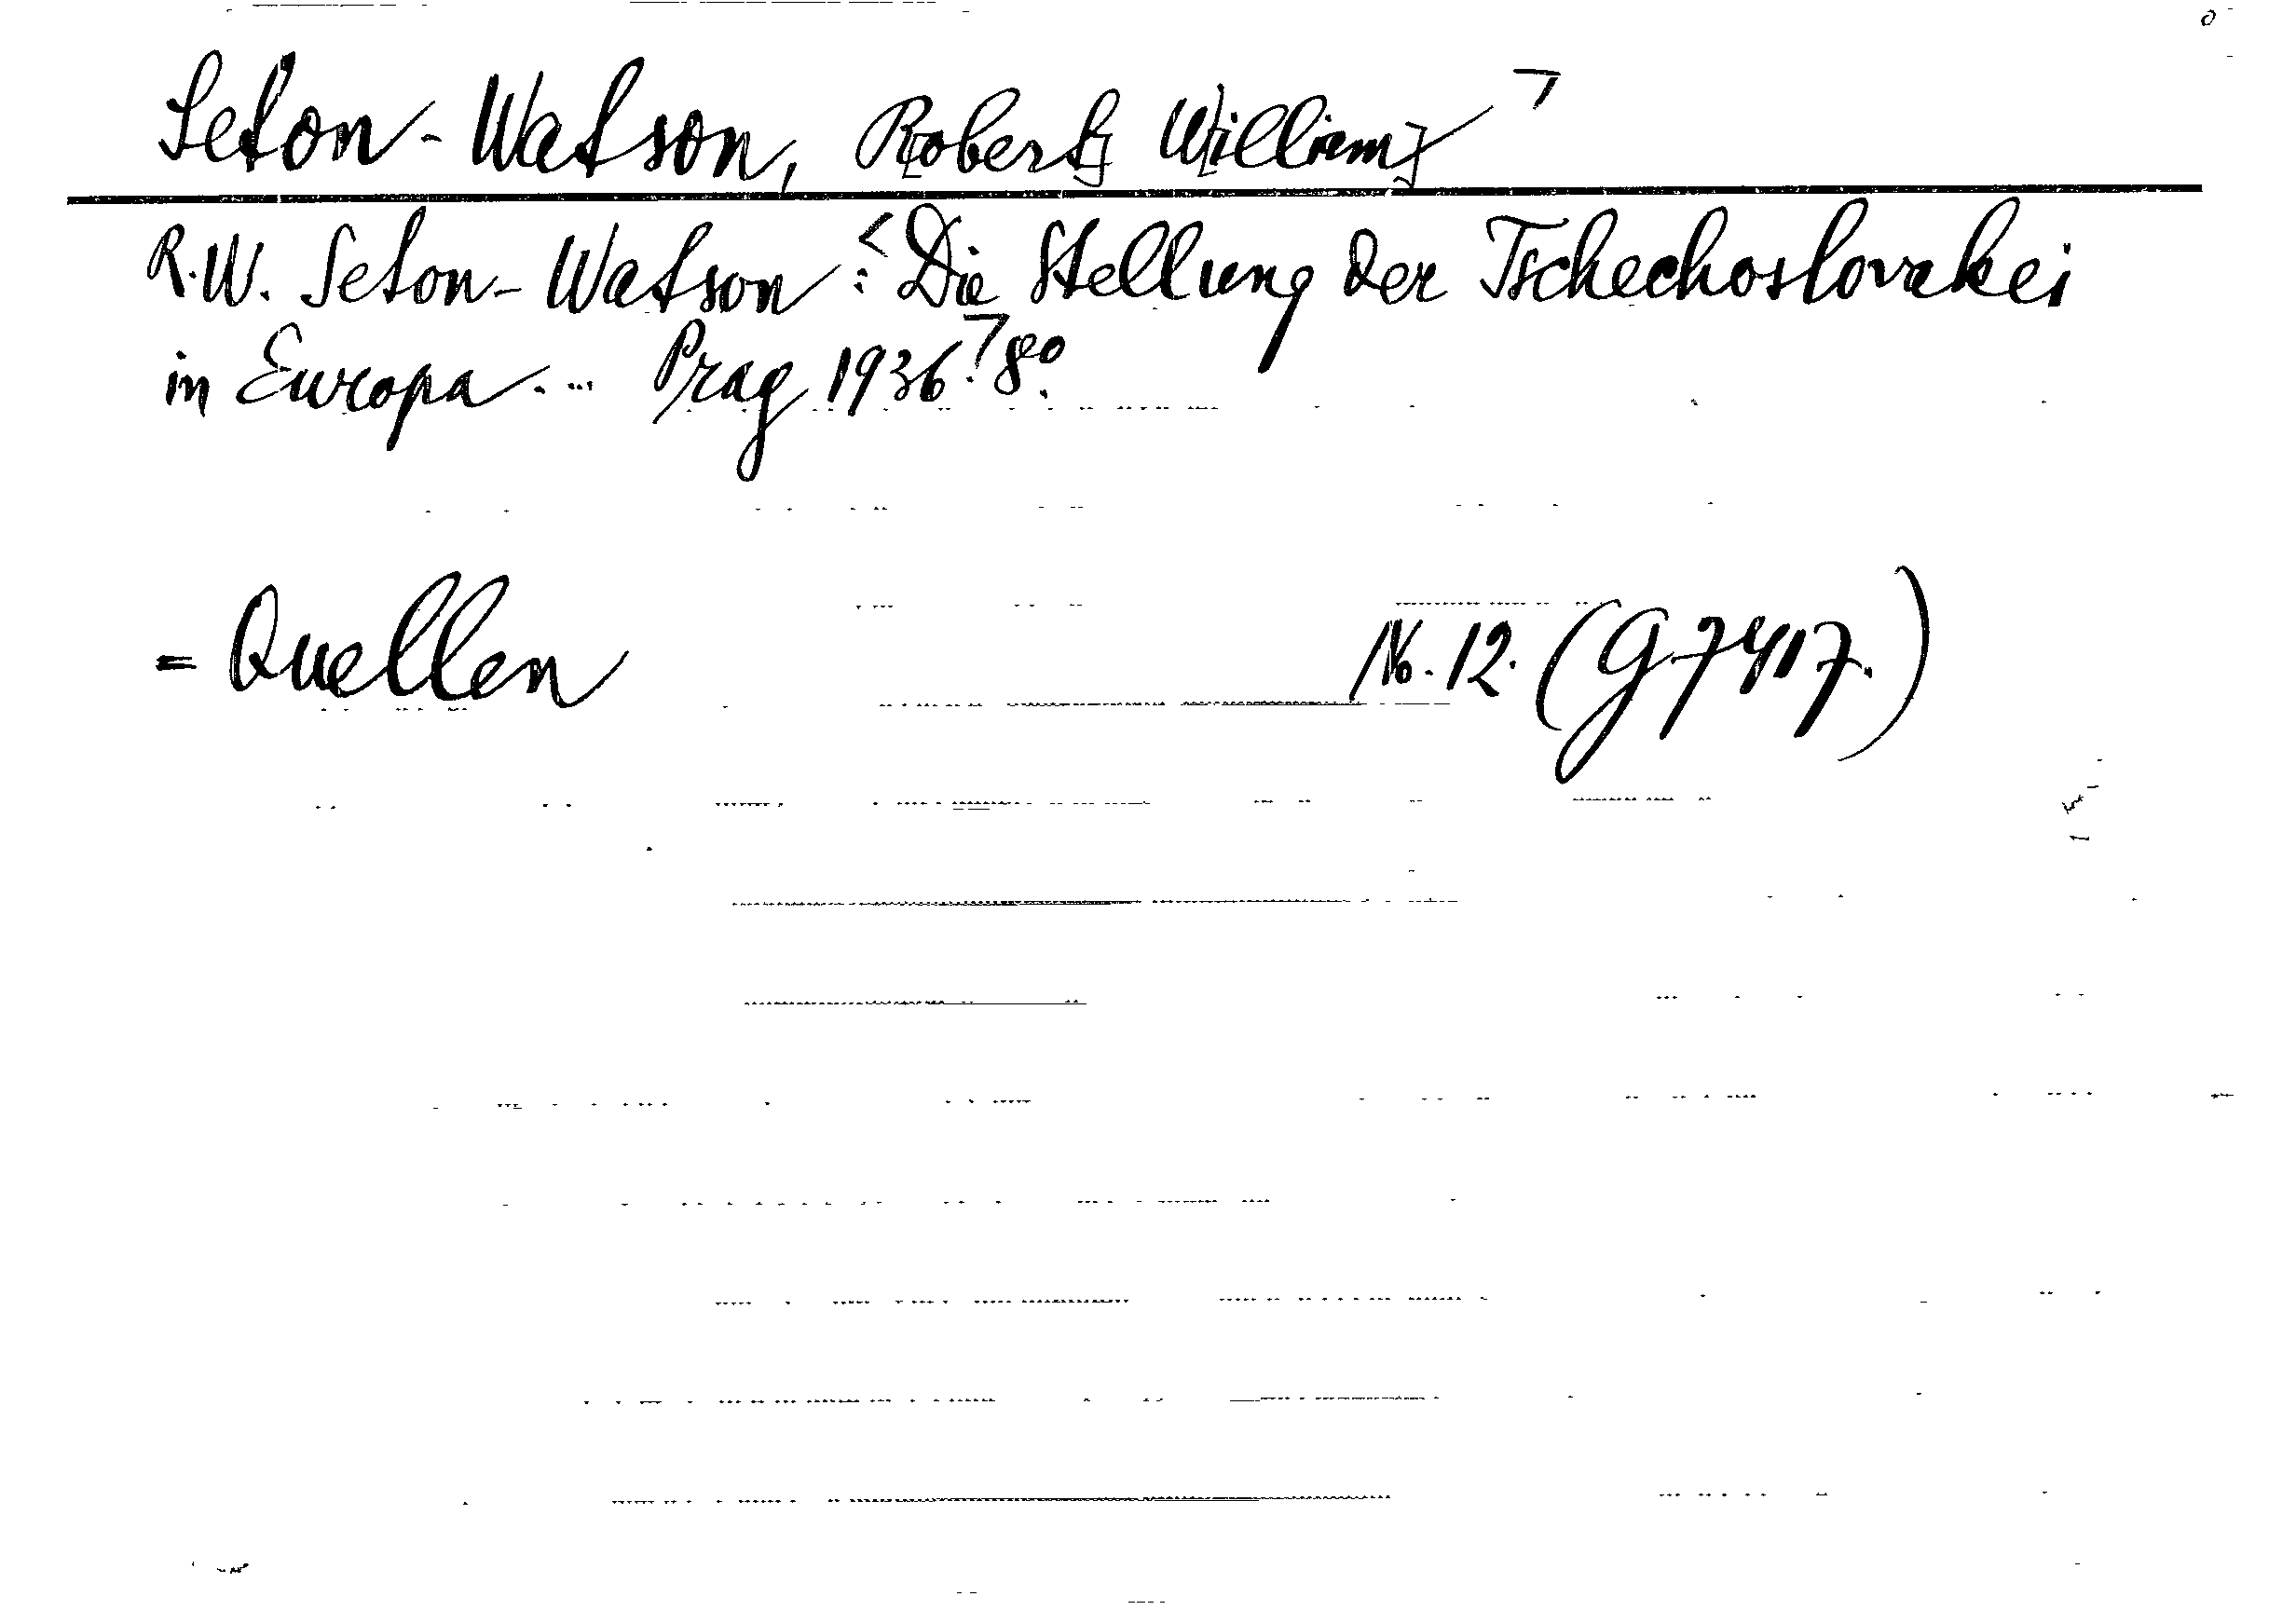 Seton-Watson, R[obert] W[illiam] ⌝
R.W. Seton-Watson: <Die Stellung der Tschechoslovakei
in Europa... Prag 1936.⌝ 8°.
= Quellen No. 12. (G 7417.)